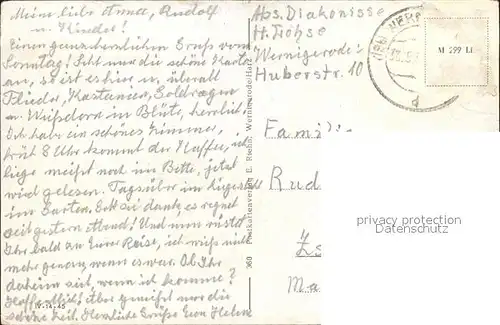 Meine liebe Anneli, Rudolf
u. Kinder!
Einen ganz herzlichen Gruß vom
Sonntag! Seht nur die schöne Karte
an, so ist es hier u. überall
Flieder, Kastanien, Goldregen
u. Weißdorn in Blüte, herrlich!
Ich habe ein schönes Zimmer,
früh 8 Uhr kommt der Kaffee, ich
liege meist noch im Bette, jetzt
wird gelesen. Tagsüber im Liegestuhl
im Garten. Gott sei dank, es regnet
seit gestern Abend! Und nun rüstet
Ihr bald zu Eurer Reise, ich weiß nicht
mehr genau, wenn es war. Ob Ihr
daheim seit, wenn ich komme?
Hoffentlich! Aber genießt nur die
schöne Zeit. Herzliche Grüße Eure Helene
IV-14-45
360 Postkartenverlag E. Riehn, Wernigerode/Harz
Abs. Diakonisse
H. Lohse
Wernigerode
Huberstr. 10
M 299 Li
Famil
Rud
Ma
privacy protection
Datenschutz